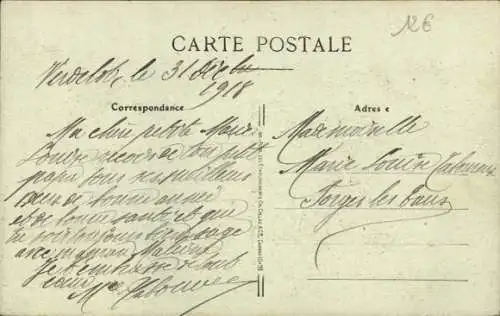 12€
CARTE POSTALE
Verdelot, le 31 décbre
1918
Correspondance
Adresse
Ma chère petite Marie
Louise de ton petit
papa tous ses meilleurs
vœux de bonne année
et de bonne santé et que
tu sois toujours bien sage
avec maman
Je t'embrasse de tout
cœur
Mademoiselle
Marie Louise
Forges les bains